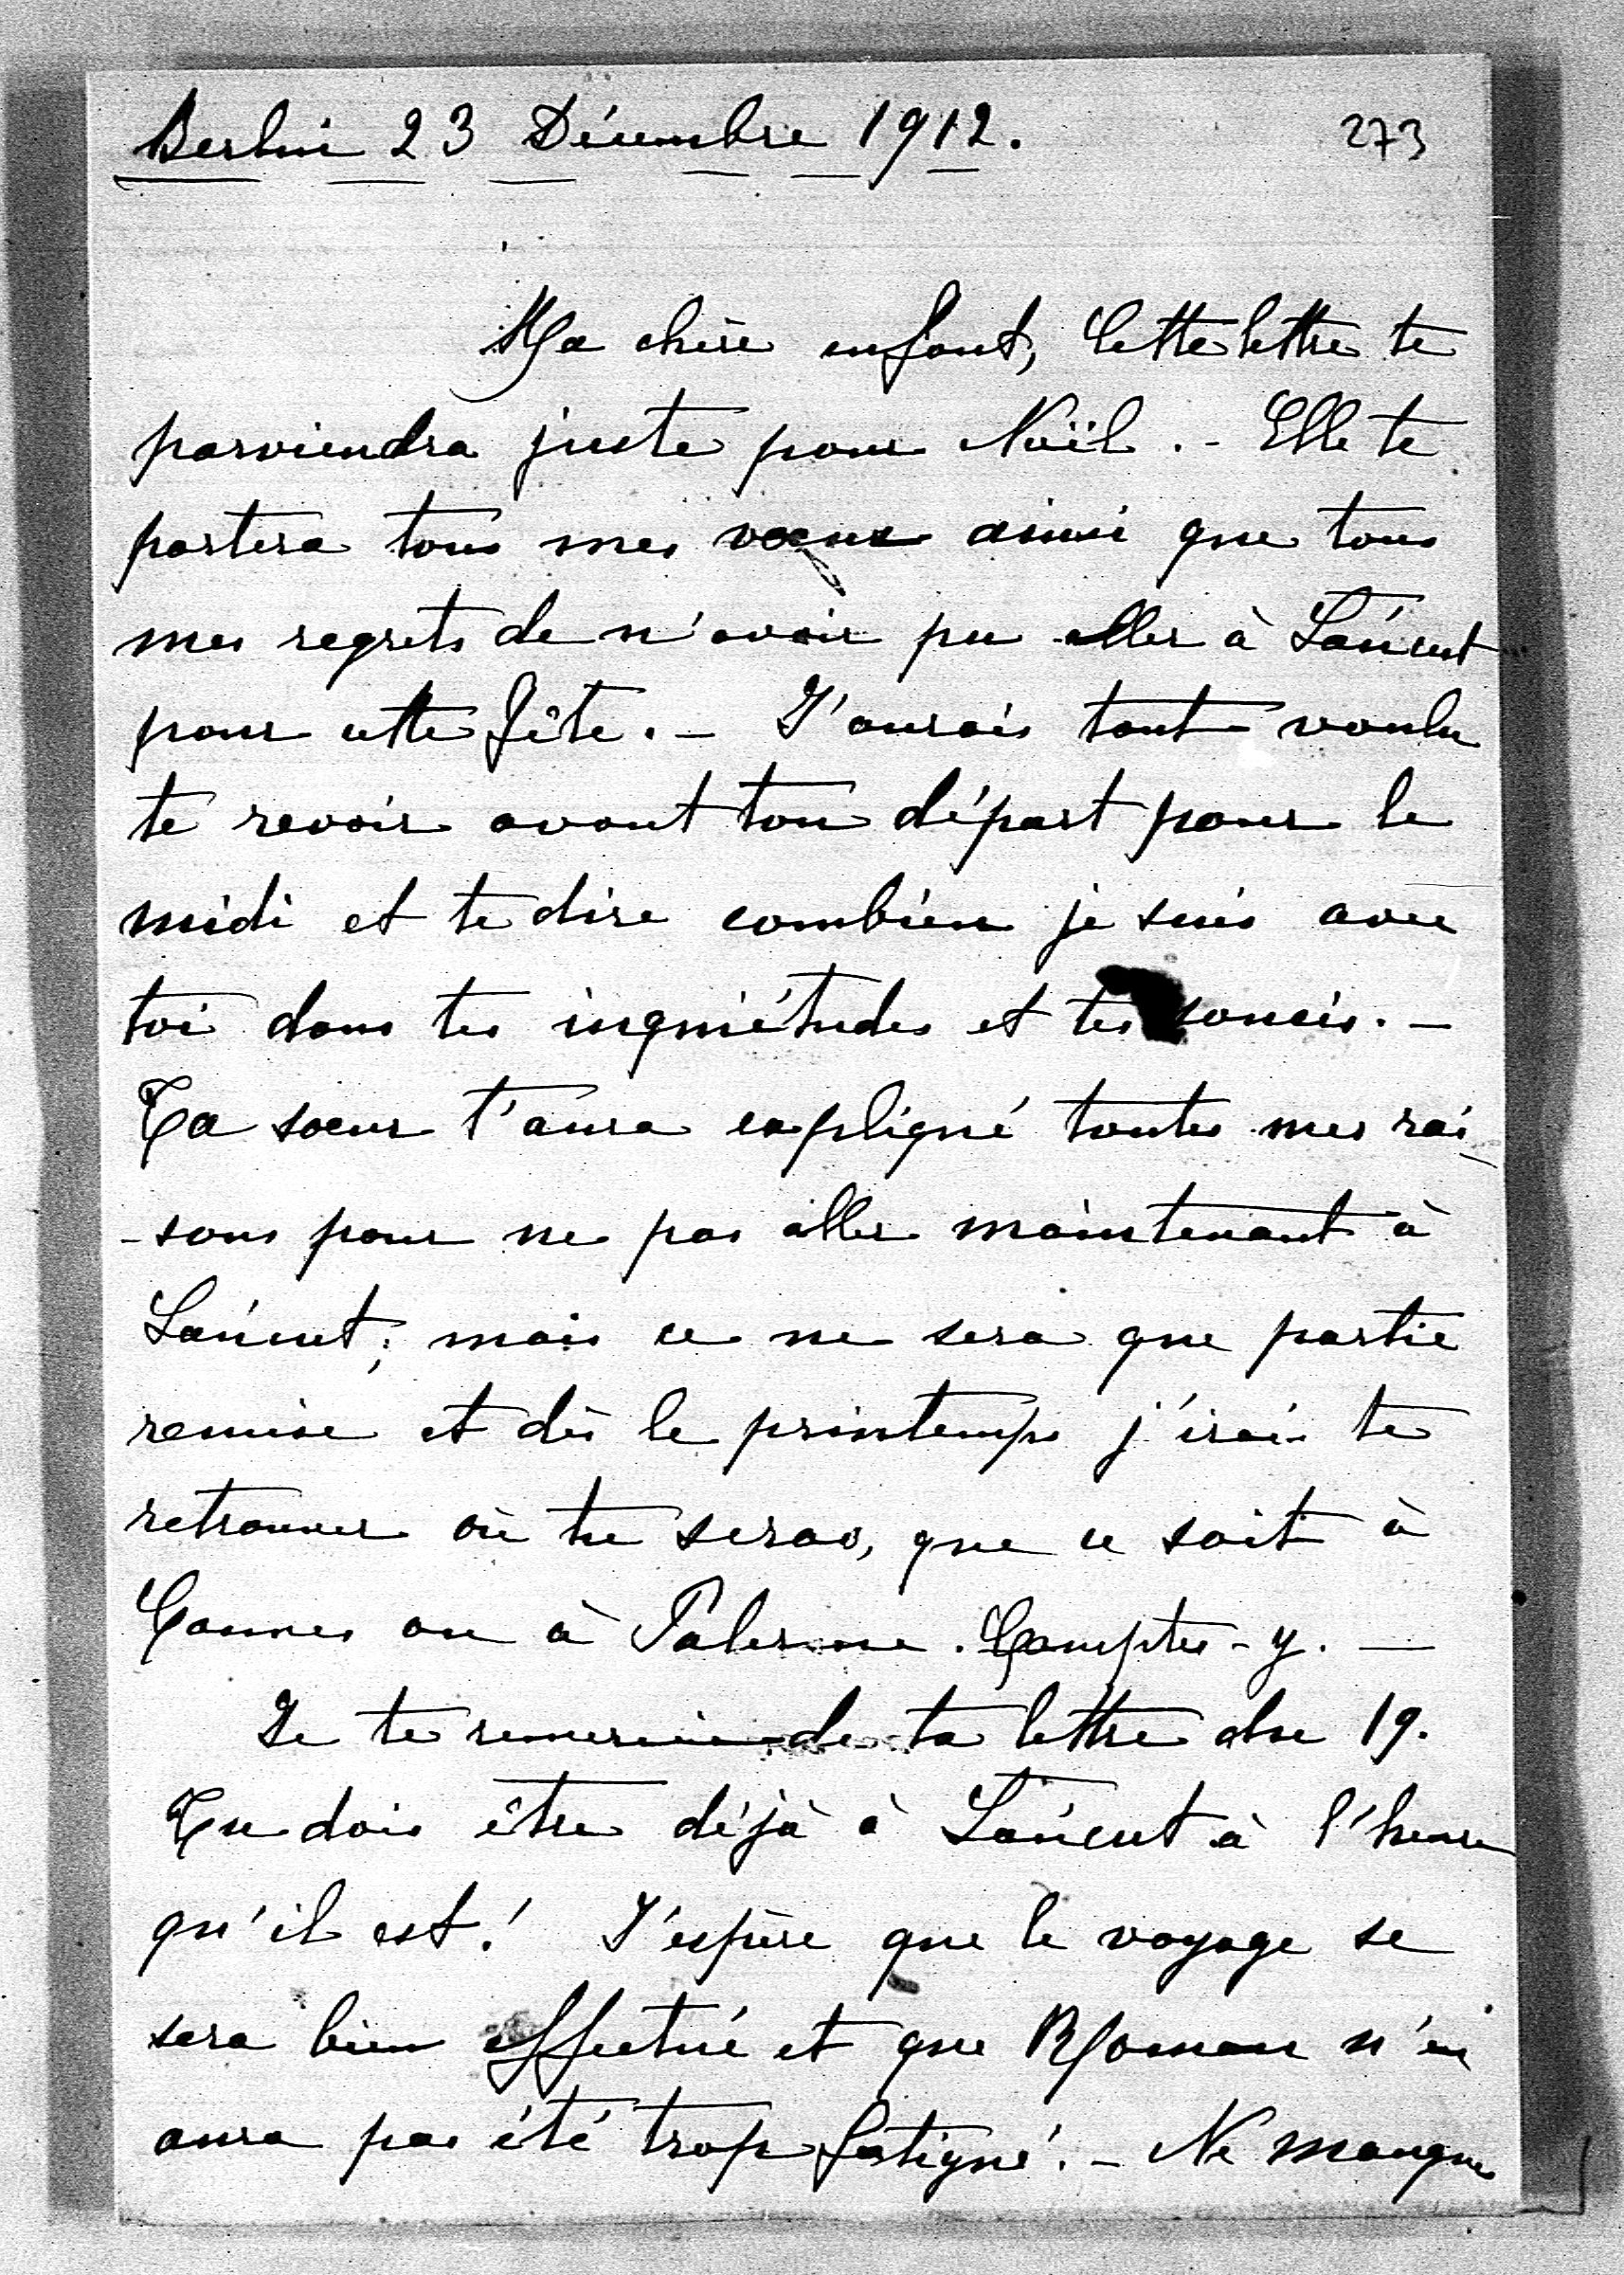 Berlin 23 Décembre 1912.
273
Ma chère enfant, Cette lettre te
parviendra juste pour Noël. - Elle te
portera tous mes vœux ainsi que tous
mes regrets de n'avoir pu aller à Łańcut
pour cette fête. - J'aurais tant voulu
te revoir avant ton départ pour le
midi et te dire combien je suis avec
toi dans tes inquiétudes et tes soucis. -
Ta sœur t'aura expliqué toutes mes rai
-sons pour ne pas aller maintenant à
Łańcut; mais ce ne sera que partie
remise et dès le printemps j'irai te
retrouver où tu seras, que ce soit à
Cannes ou à Palerme. Comptes-y. —
Je te remercie de ta lettre du 19.
Tu dois être déjà à Łańcut à l'heure
qu'il est! J'espère que le voyage se
sera bien effectué et que Roman n'en
aura pas été trop fatigué. - Ne manque